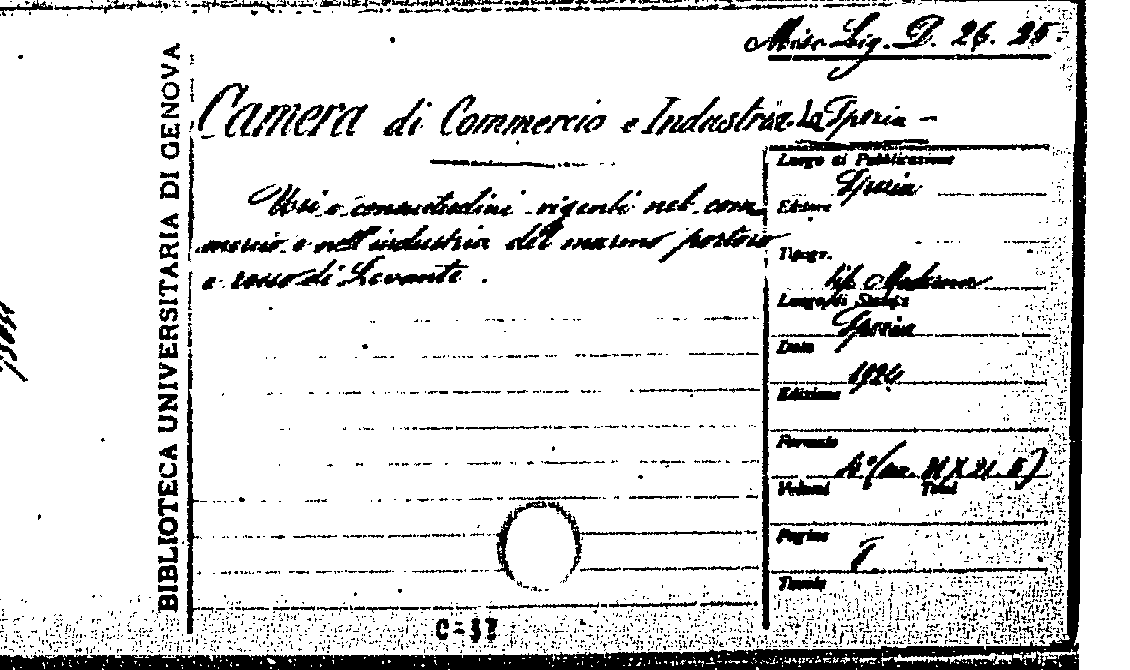 Misc. Lig. D. 26. 25.
BIBLIOTECA UNIVERSITARIA DI GENOVA
Camera di Commercio e Industria. La Spezia -
Usi e consuetudini vigenti nel com
mercio e nell'industria del marmo portoro
e rosso di Levante.
Luogo di Pubblicazione
Spezia
Editore
Tipogr.
tip. Moderna
Luogo di Stampa
Spezia
Data
1924
Edizione
Formato
4°
Volumi Total
Pagine
Tavole
C-37